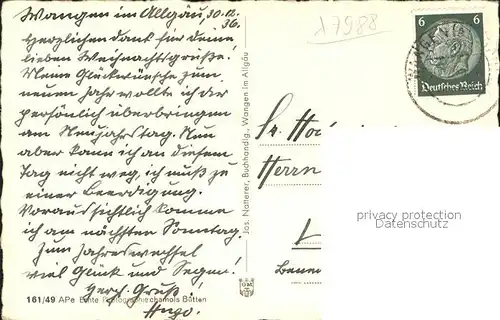 Wangen im Allgäu, 30.12.
36.
Herzlichen Dank für Deine
lieben Weihnachtsgrüße!
Meine Glückwünsche zum
neuen Jahr wollte ich dir
persönlich überbringen
am Neujahrstag. Nun
aber kann ich an diesem
Tag nicht weg, ich muß zu
einer Beerdigung.
Voraussichtlich komme
ich am nächsten Sonntag.
Zum Jahreswechsel
viel Glück und Segen!
Herzl. Gruß!
Hugo.
161/49 APe Echte Photographie chamois Bütten
Jos. Natterer, Buchhandlg., Wangen im Allgäu
λ7988
6 6
Deutsches Reich
Herrn
privacy protection
Datenschutz